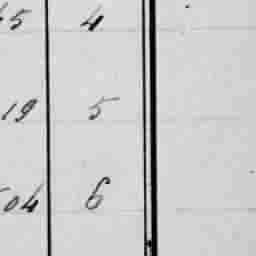 45 4
19 5
504 6